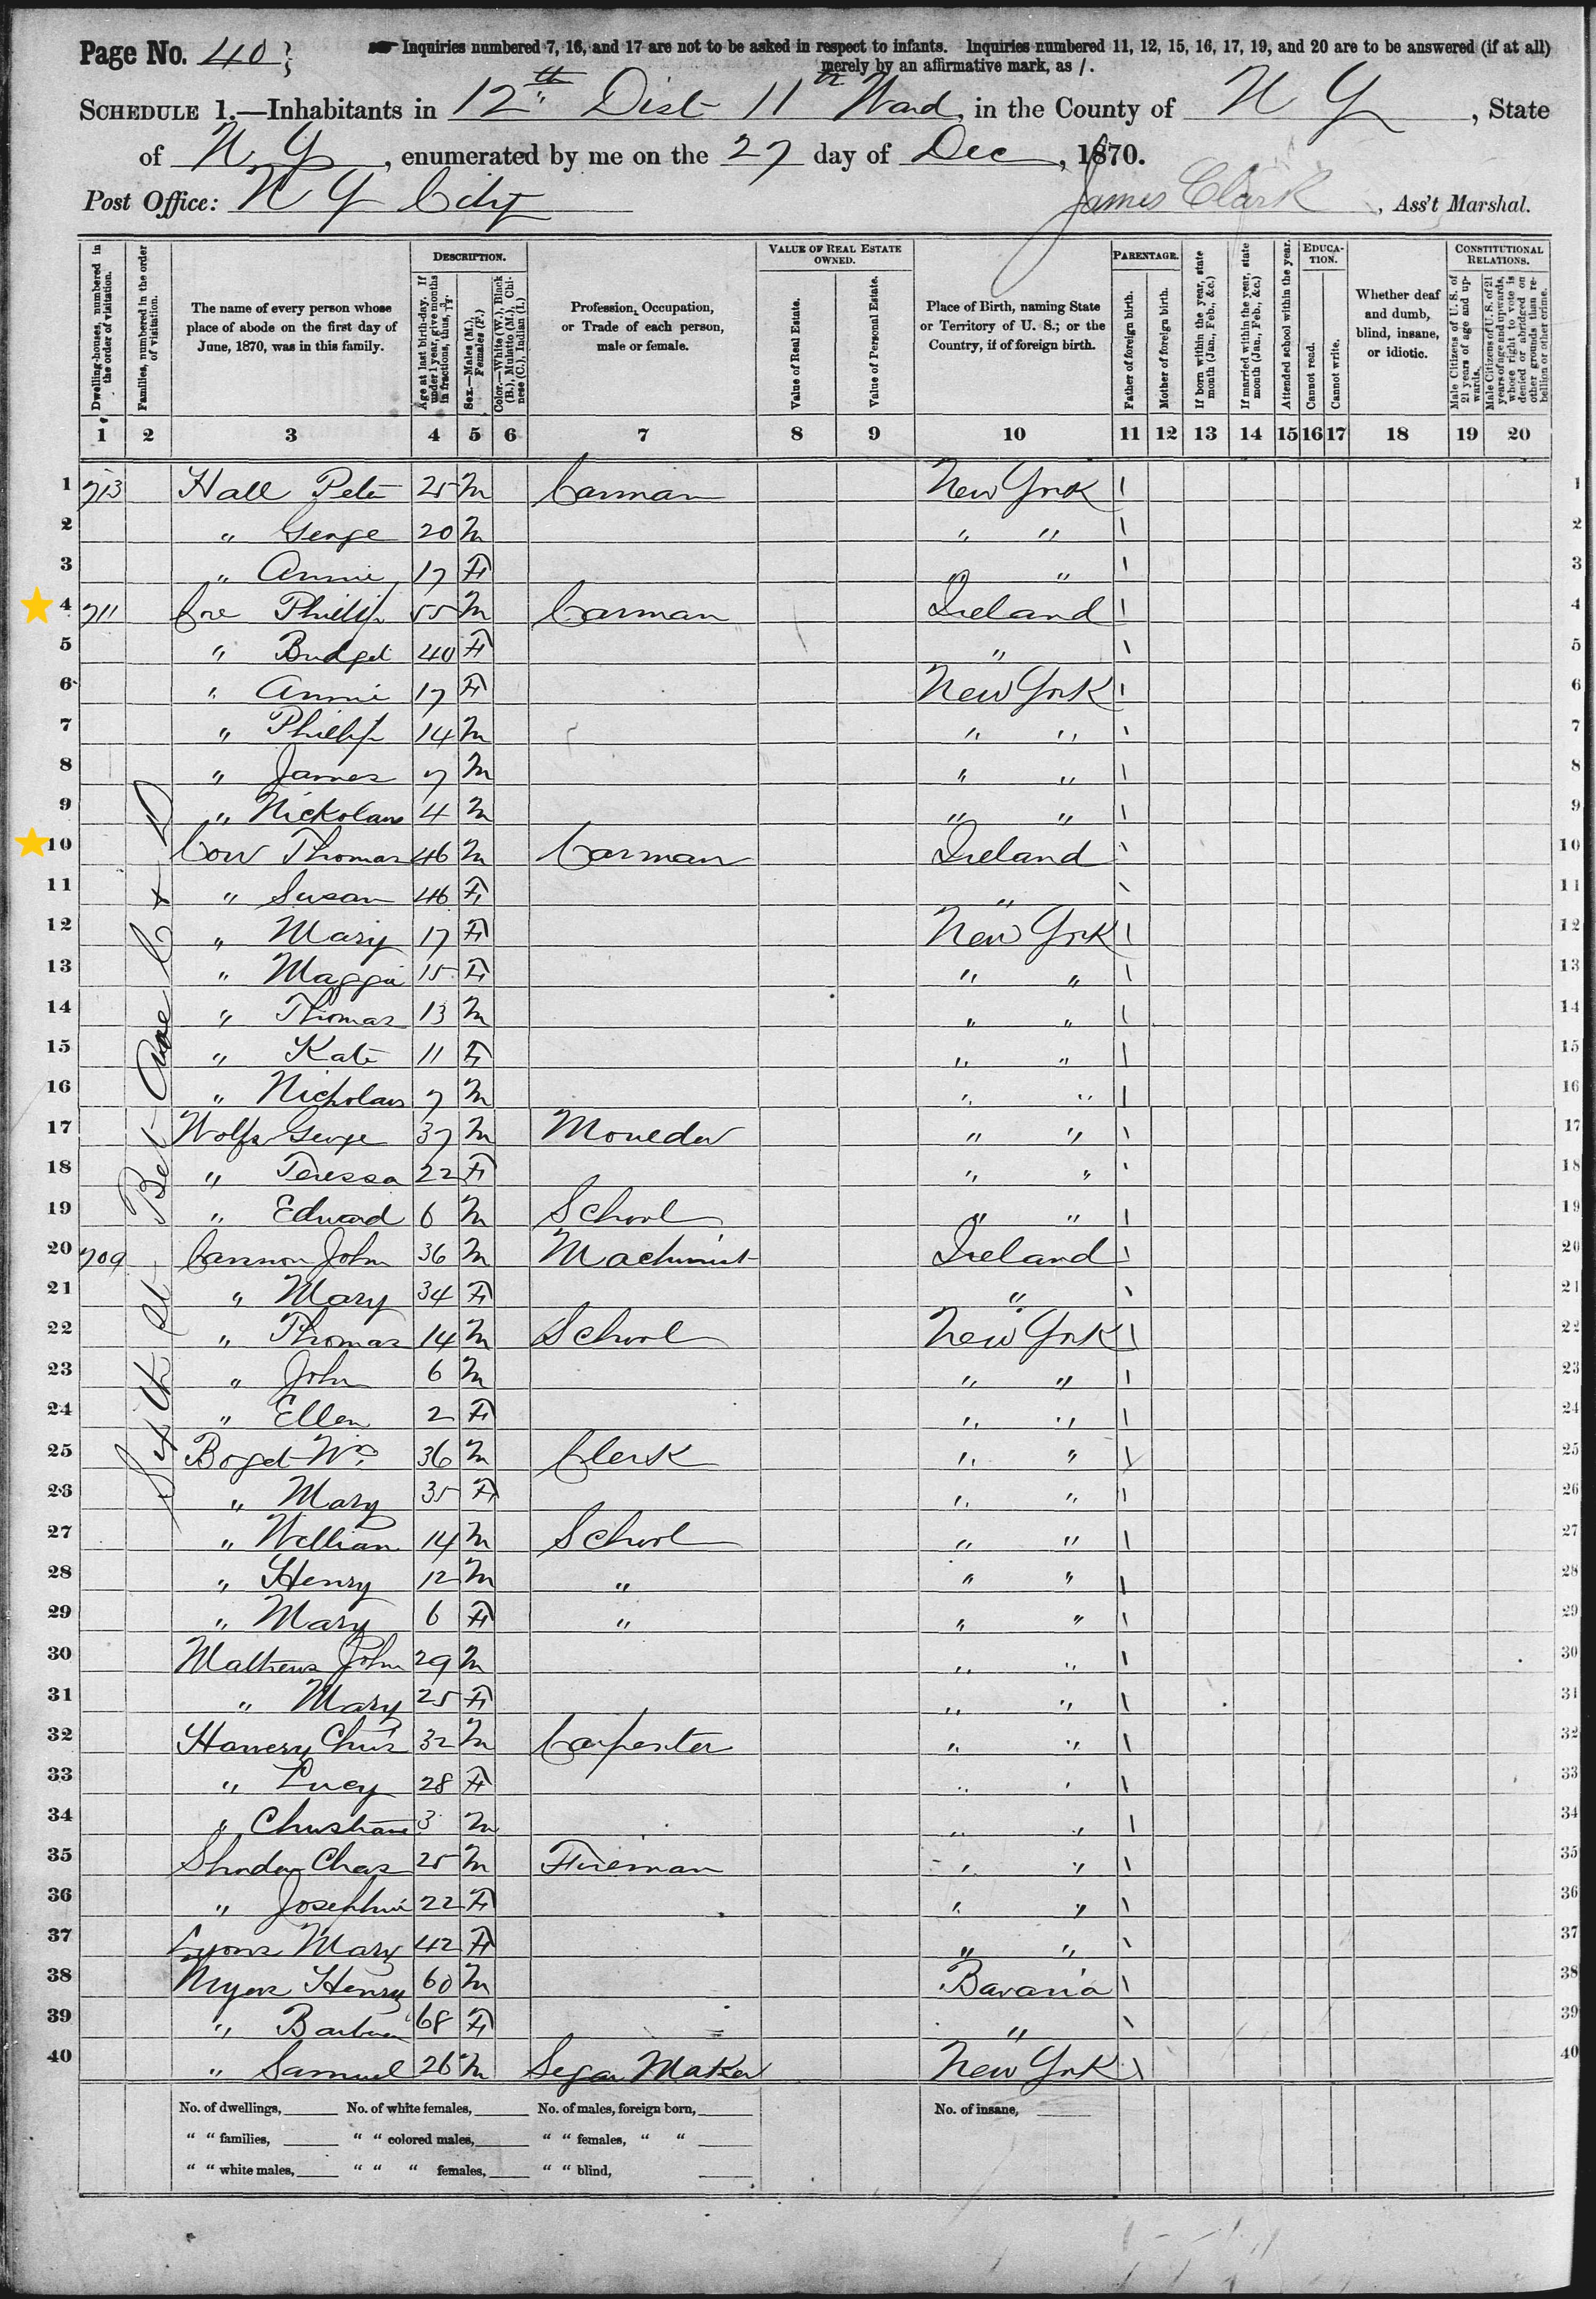 Page No. 40
Inquiries numbered 7, 16, and 17 are not to be asked in respect to infants. Inquiries numbered 11, 12, 15, 16, 17, 19, and 20 are to be answered (if at all)
merely by an affirmative mark, as /.
SCHEDULE 1.—Inhabitants in 12th Dist 11th Ward, in the County of N Y, State
of N Y, enumerated by me on the 27 day of Dec, 1870.
Post Office: N Y City James Clark, Ass't Marshal.
Dwelling-houses, numbered in the order of visitation.
Families, numbered in the order of visitation.
The name of every person whose place of abode on the first day of June, 1870, was in this family.
DESCRIPTION.
Age at last birth-day. If under 1 year, give months in fractions, thus, 3/12.
Sex.—Males (M.), Females (F.)
Color.—White (W.), Black (B.), Mulatto (M.), Chinese (C.), Indian (I.)
Profession, Occupation, or Trade of each person, male or female.
VALUE OF REAL ESTATE OWNED.
Value of Real Estate.
Value of Personal Estate.
Place of Birth, naming State or Territory of U. S.; or the Country, if of foreign birth.
PARENTAGE.
Father of foreign birth.
Mother of foreign birth.
If born within the year, state month (Jan., Feb., &c.)
If married within the year, state month (Jan., Feb., &c.)
Attended school within the year.
EDUCATION.
Cannot read.
Cannot write.
Whether deaf and dumb, blind, insane, or idiotic.
CONSTITUTIONAL RELATIONS.
Male Citizens of U. S. of 21 years of age and upwards.
Male Citizens of U. S. of 21 years of age and upwards, whose right to vote is denied or abridged on other grounds than rebellion or other crime.
1 2 3 4 5 6 7 8 9 10 11 12 13 14 15 16 17 18 19 20
1 713 Hall Pete 25 M Carman New York / 1
2 " George 20 M " " / 2
3 " Annie 17 F " " / 3
4 711 Coe Phillip 55 M Carman Ireland / 4
5 " Bridget 40 F " / 5
6 " Annie 17 F New York / 6
7 " Phillip 14 M " " / 7
8 " James 7 M " " / 8
9 " Nickolaus 4 M " " / 9
10 Cow Thomas 46 M Carman Ireland / 10
11 " Susan 46 F " / 11
12 " Mary 17 F New York / 12
13 " Maggie 15 F " " / 13
14 " Thomas 13 M " " / 14
15 " Kate 11 F " " / 15
16 " Nicholaus 7 M " " / 16
17 Wolfe George 37 M Moulder " " / 17
18 " Teressa 22 F " " / 18
19 " Edward 6 M School " " / 19
20 709 Cannon John 36 M Machinist Ireland / 20
21 " Mary 34 F " / 21
22 " Thomas 14 M School New York / 22
23 " John 6 M " " / 23
24 " Ellen 2 F " " / 24
25 Boget Wm 36 M Clerk " " / 25
26 " Mary 35 F " " / 26
27 " William 14 M School " " / 27
28 " Henry 12 M " " " / 28
29 " Mary 6 F " " " / 29
30 Mathews John 29 M " " / 30
31 " Mary 25 F " " / 31
32 32 M Carpenter " " / 32
33 " Lucy 28 F " " / 33
34 " 3 M " " / 34
35 Chas 25 M Fireman " " / 35
36 " Josephine 22 F " " / 36
37 Lyons Mary 42 F " " / 37
38 Myers Henry 60 M Bavaria / 38
39 " Barbara 68 F " / 39
40 " Samuel 26 M Segar Maker New York / 40
Sixth St Bet Ave C & D
No. of dwellings, No. of white females, No. of males, foreign born, No. of insane,
" " families, " " colored males, " " females, " "
" " white males, " " " females, " " blind,